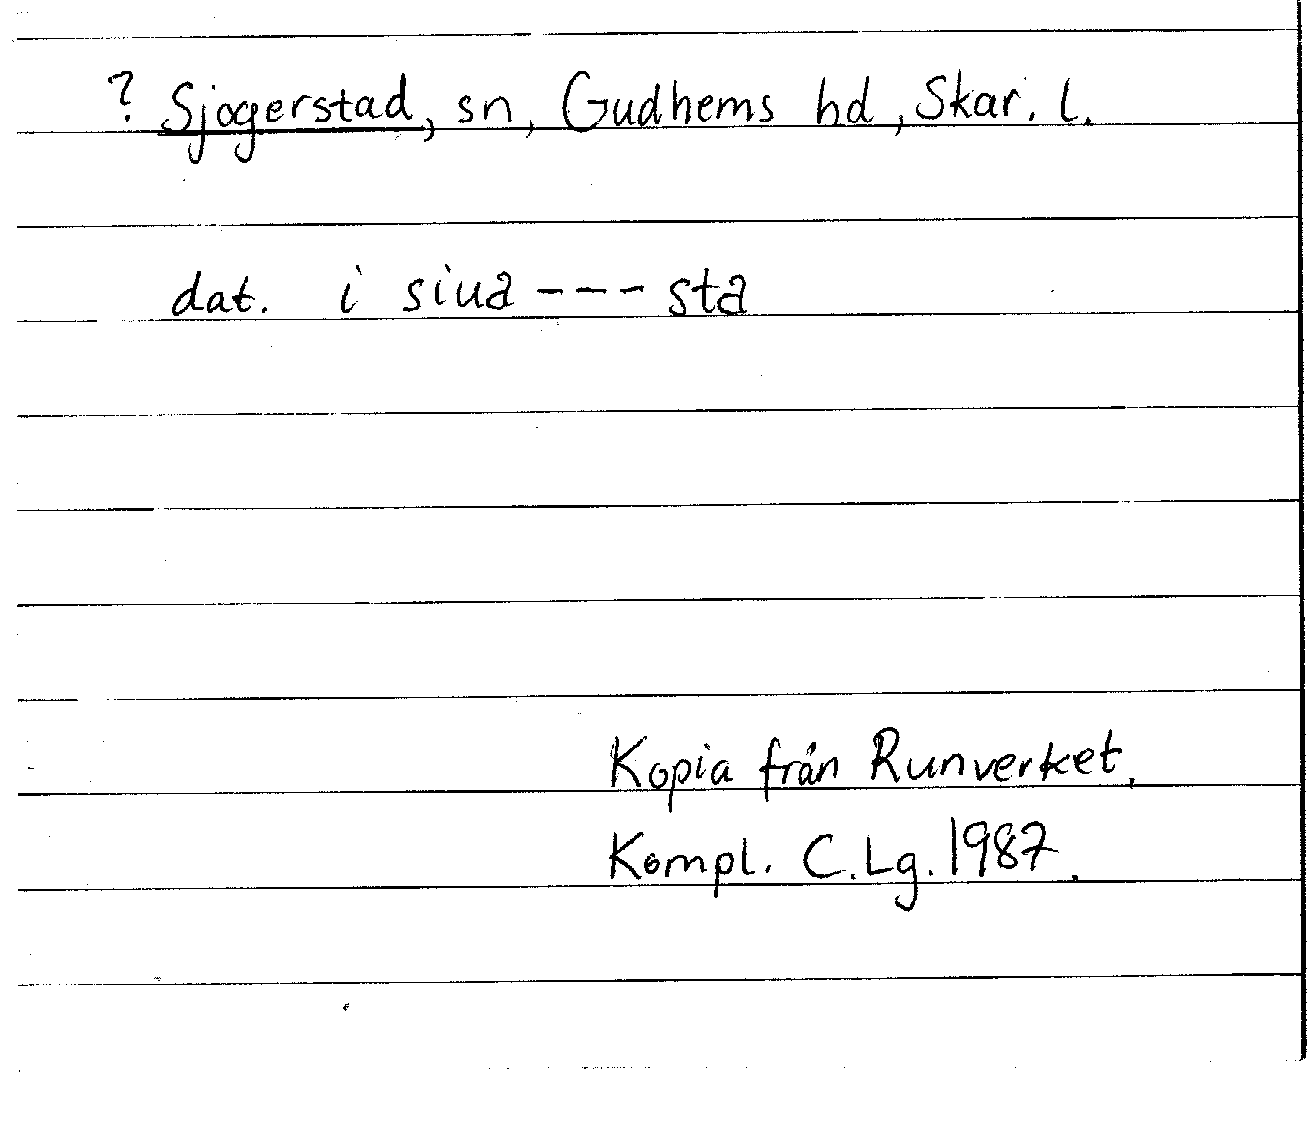 ? Sjogerstad, sn, Gudhems hd, Skar. l.
dat. i siua --- sta
Kopia från Runverket.
Kompl. C.Lg. 1987.